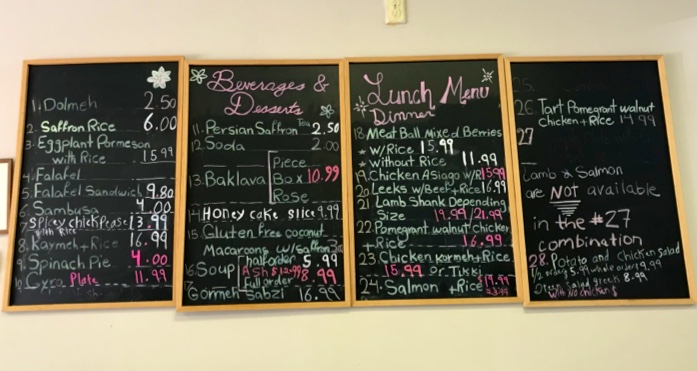 1. Dolmeh 2.50
2. Saffron Rice 6.00
3. Eggplant Parmeson
with Rice 15.99
4. Falafel
5. Falafel Sandwich 9.80
6. Sambusa 4.00
7 Spicy chickPease 13.99
with Rice
8. Kaymeh + Rice 16.99
9. Spinach Pie 4.00
10. Gyro Plate 11.99
Beverages &
Desserts
11. Persian Saffron Tea 2.50
12. Soda 2.00
13. Baklava
Piece
Box 10.99
Rose
14 Honey cake slice 9.99
15 Gluten free coconut
Macaroons w/saffron
16 Soup
half order 5.99
ASh
full order 8.99
17
Gormeh Sabzi 16.99
Lunch Menu
Dinner
18 Meat Ball Mixed Berries
* w/Rice 15.99
* without Rice 11.99
19. Chicken Asiago w/R 15.99
20 Leeks w/Beef+Rice 16.99
21 Lamb Shank Depending
Size 19.99/21.99
22 Pomegrant walnut chicken
+Rice 16.99
23 Chicken Kormeh+Rice
15.99 or Tikki
24. Salmon +Rice $19.99
25.
26 Tart Pomegrant walnut
Chicken + Rice 14.99
27
Lamb & Salmon
are NOT available
in the #27
combination
28. Potato and Chicken Salad
1/2 order 5.99 whole order 9.99
Green Salad greek 8.99
with No chicken